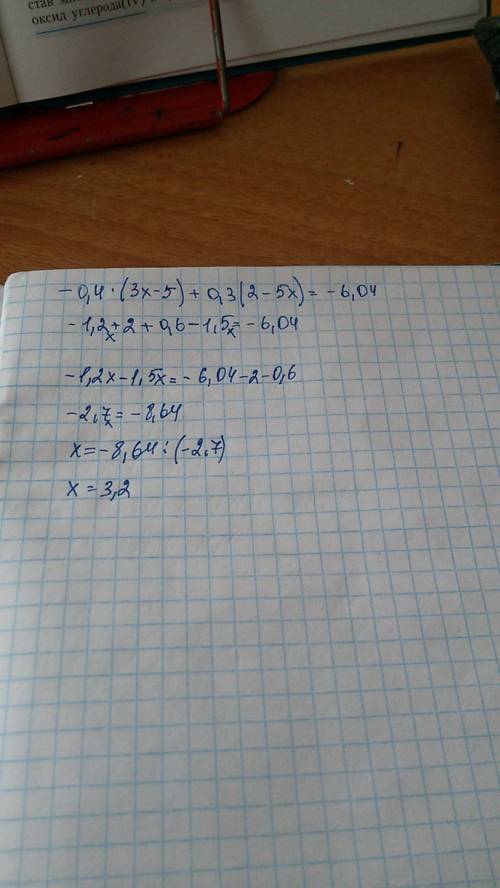 став
оксид углерода(IV)
-0,4·(3x-5)+0,3(2-5x)=-6,04
-1,2x+2+0,6-1,5x=-6,04
-1,2x-1,5x=-6,04-2-0,6
-2,7x=-8,64
x=-8,64:(-2,7)
x=3,2